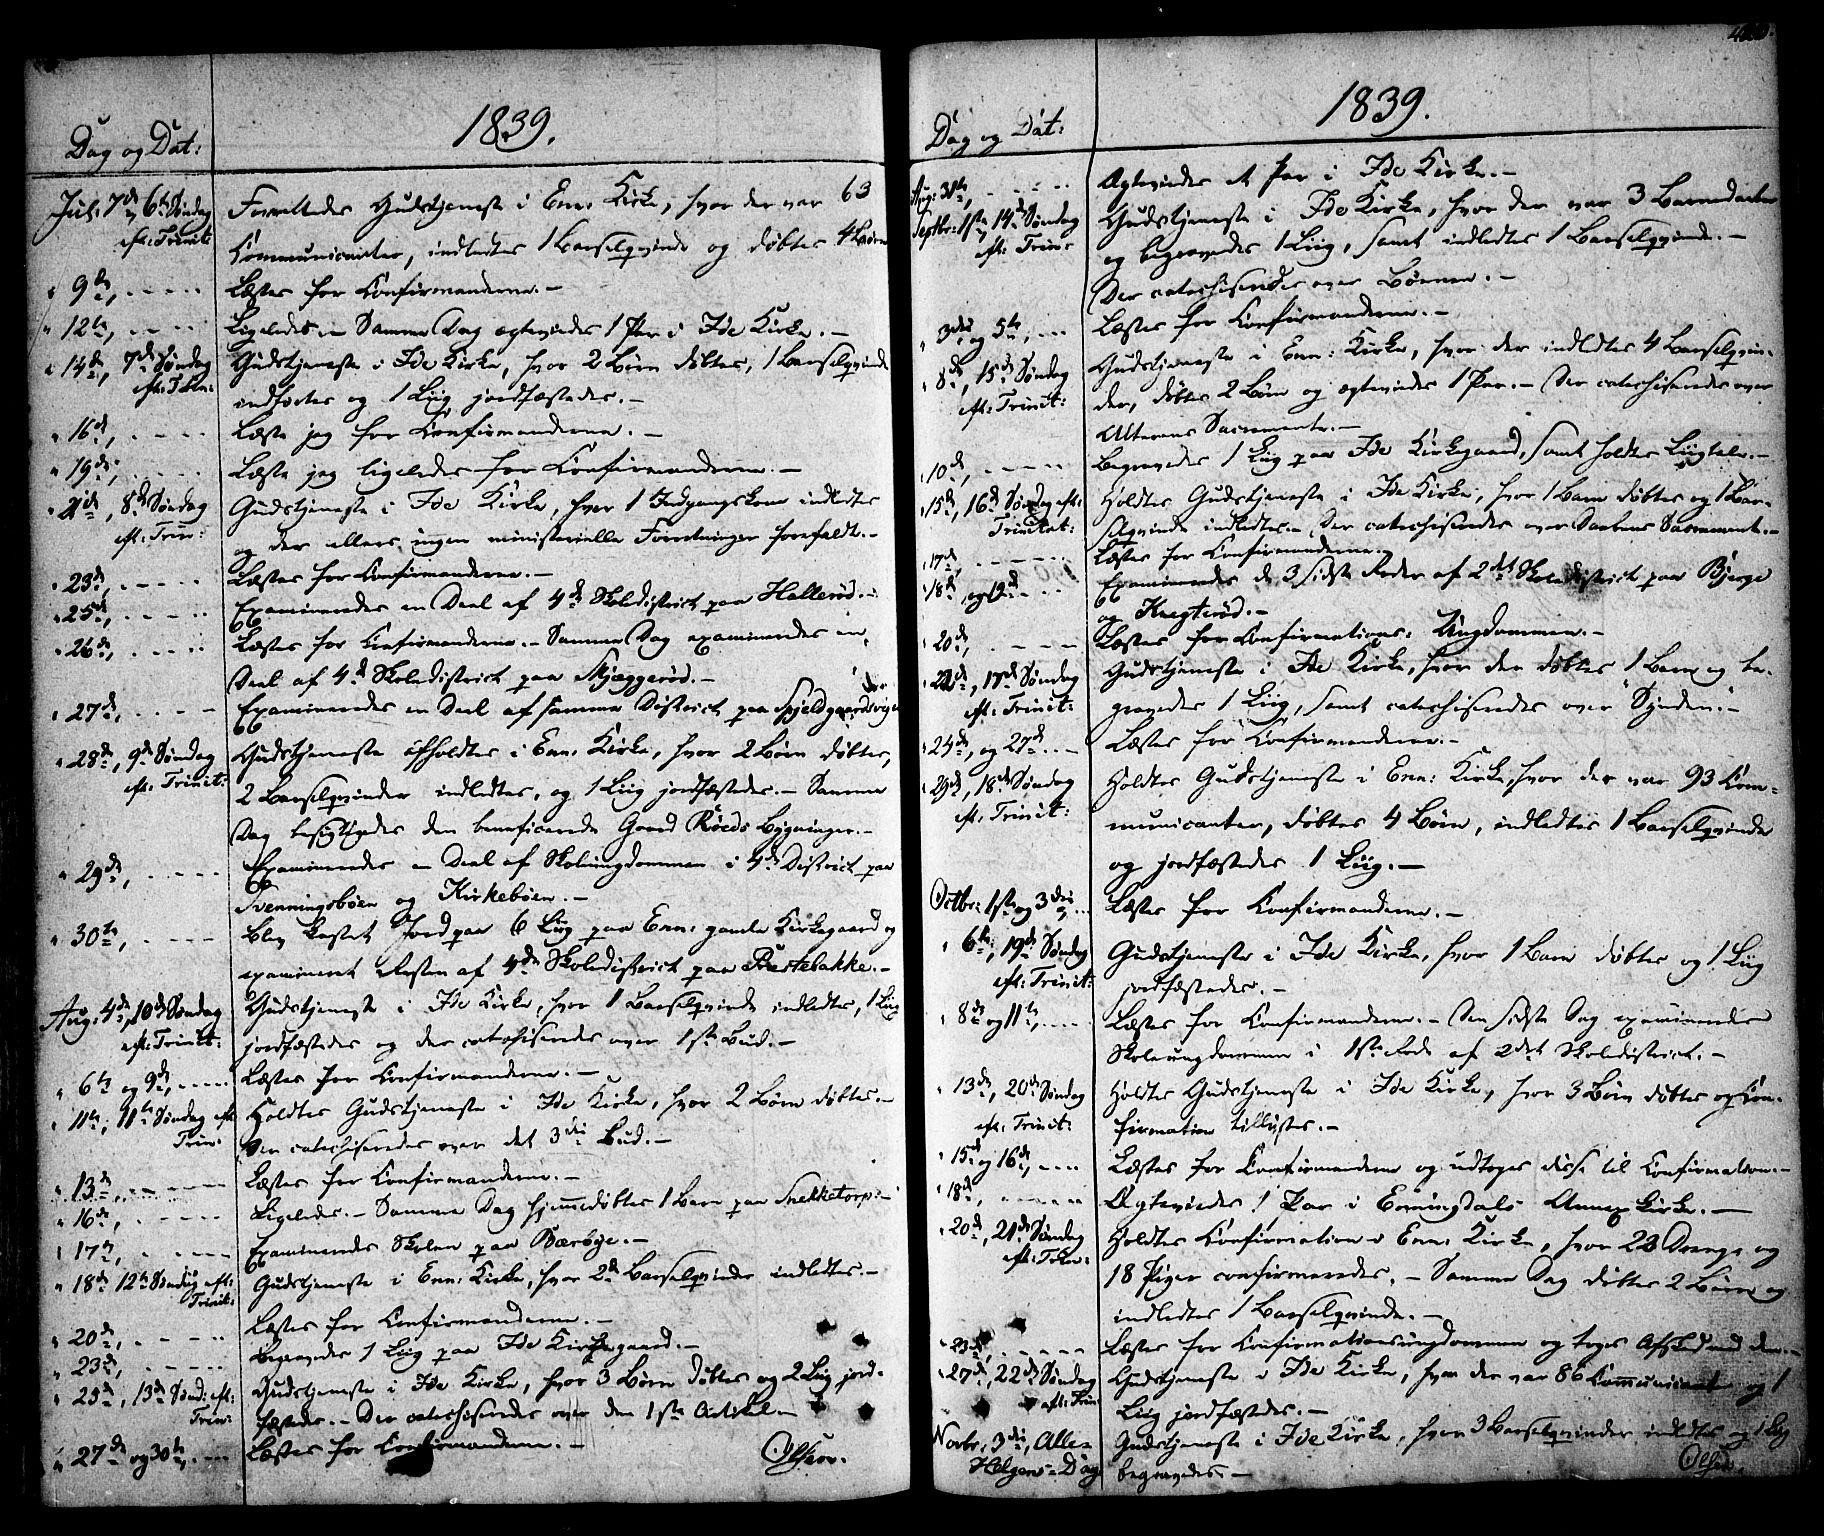 1839.
Dag og Dat:
Jul: 7de, 6te Søndag Forrettedes Gudstjeneste i Enn: Kirke, hvor der var 63
eft: Trinit: Communicanter, indledtes 1 Barselqvinde og døbtes 4 Børn
" 9de, - - - - Læstes for Confirmanderne. -
" 12te, - - - - Ligeledes. - Samme Dag ægteviedes 1 Par i Ide Kirke. -
" 14de, 7de Søndag Gudstjeneste i Ide Kirke, hvor 2 Børn døbtes, 1 Barselqvinde
eft: Trin: indførtes og 1 Liig jordfæstedes. -
" 16de, - - - - Læste jeg for Confirmanderne. -
" 19de, - - - - Læste jeg ligeledes for Confirmanderne. -
" 21de, 8de Søndag Gudstjeneste i Ide Kirke, hvor 1 Indgangskone indledtes
eft: Trin: og der ellers ingen ministerielle Forretninger forefaldt. -
" 23de, - - - - Læstes for Confirmanderne. -
" 25de, - - - - Examineredes en Deel af 4de Skoledistrict paa Hallerød. -
" 26de, - - - - Læstes for Confirmanderne. - Samme Dag examineredes en
Deel af 4de Skoledistrict paa Mjæggerød. -
" 27de, - - - - Examineredes en Deel af samme District paa Spjeldgaardsvigen
" 28de, 9de Søndag Gudstjeneste afholdtes i Enn: Kirke, hvor 2 Børn døbtes,
eft: Trinit: 2 Barselqvinder indledtes, og 1 Liig jordfæstedes. - Samme
Dag besigtigedes den beneficerede Gaard Røeds Bygninger. -
" 29de, - - - - Examineredes en Deel af Skoleungdommen i 4de District paa
Svenningsbøen og Kirkebøen. -
" 30te, - - - - Blev kastet Jord paa 6 Liig paa Enn: gamle Kirkegaard og
examineret Resten af 4de Skoledistrict paa Præstebakke. -
Aug: 4de, 10de Søndag Gudstjeneste i Ide Kirke, hvor 1 Barselqvinde indledtes, 1 Liig
eft: Trinit: jordfæstedes og der catechiseredes over 1ste Bud. -
" 6te og 9de, - - - - Læstes for Confirmanderne. -
" 11te, 11te Søndag eft: Holdtes Gudstjeneste i Ide Kirke, hvor 2 Børn døbtes. -
Trin: Der catechiseredes over det 3die Bud. -
" 13de, - - - - Læstes for Confirmanderne. -
" 16de, - - - - Ligeledes. - Samme Dag hjemmedøbtes 1 Barn paa Snekketorp. -
" 17de, - - - - Examineredes Skolen paa Bærbye. -
" 18de 12te Søndag eft: Gudstjeneste i Enn: Kirke, hvor 2de Barselqvinder indledtes. -
Trinit:
" 20de, - - - - Læstes for Confirmanderne. -
" 23de, - - - - Begravedes 1 Liig paa Ide Kirkegaard. -
" 25de, 13de Sønd: eft: Gudstjeneste i Ide Kirke, hvor 3 Børn døbtes og 2 Liig jord-
Trin: fæstedes. - Der catechiseredes over den 1ste Artikel. -
" 27de og 30te, - - Læstes for Confirmanderne. -
Olsen.
1839.
Dag og Dat:
Aug: 31te, - - - - Ægteviedes et Par i Ide Kirke. -
Septbr: 1ste, 14de Søndag Gudstjeneste i Ide Kirke, hvor der var 3 Barnedaaber
eft: Trin: og begravedes 1 Liig, samt indledtes 1 Barselqvinde. -
Der catechiseredes over Bønnen. -
" 3die og 5te, - - Læstes for Confirmanderne. -
" 8de, 15de Søndag Gudstjeneste i Enn: Kirke, hvor der indledtes 4 Barselqvin-
eft: Trinit: der, døbtes 2 Børn og ægteviedes 1 Par. - Der catechiseredes over
Alterens Sacramente. -
" 10de, - - - - Begravedes 1 Liig paa Ide Kirkegaard, samt holdtes Liigtale. -
" 15de, 16de Søndag eft: Holdtes Gudstjeneste i Ide Kirke, hvor 1 Barn døbtes og 1 Bar-
Trinitat: selqvinde indledtes. Der catechiseredes over Daabens Sacramente. -
" 17de, - - - - Læstes for Confirmanderne. -
" 18de, og 19de - - Examineredes de 3 sidste Roder af 2det Skoledistrict paa Bjerge
og Kragterød. -
" 20de, - - - - Læstes for Confirmations: Ungdommen. -
" 22de, 17de Søndag Gudstjeneste i Ide Kirke, hvor der døbtes 1 Barn og be-
eft: Trinit: gravedes 1 Liig, samt catechiseredes over "Synden". -
" 24de, og 27de - - Læstes for Confirmanderne. -
" 29de, 18de Søndag Holdtes Gudstjeneste i Enn: Kirke, hvor der var 93 Com-
eft: Trinit: municanter, døbtes 4 Børn, indledtes 1 Barselqvinde
og jordfæstedes 1 Liig. -
Octbr: 1ste og 3die, - - Læstes for Confirmanderne. -
" 6te, 19de Søndag Gudstjeneste i Ide Kirke, hvor 1 Barn døbtes og 1 Liig
eft: Trinit: jordfæstedes. -
" 8de og 11te, - - - Læstes for Confirmanderne. - Den sidste Dag examineredes
Skoleungdommen i 1ste Rode af 2det Skoledistrict. -
" 13de, 20de Søndag Holdtes Gudstjeneste i Ide Kirke, hvor 3 Børn døbtes og Con-
eft: Trinit: firmation tillystes. -
" 15de og 16de, - - - Læstes for Confirmanderne og udtoges disse til Confirmation. -
" 18de, - - - - Ægteviedes 1 Par i Enningdals Annex Kirke. -
" 20de, 21de Søndag Holdtes Confirmation i Enn: Kirke, hvor 23 Drenge og
eft: Trin: 18 Piger confirmeredes. - Samme Dag døbtes 2 Børn og
indledtes 1 Barselqvinde. -
" 23de, - - - - Læstes for Confirmationsungdommen og toges Afsked med dem. -
" 27de, 22de Søndag Gudstjeneste i Ide Kirke, hvor der var 86 Communicant og 1
eft: Trin: Liig jordfæstedes. -
Novbr: 3die, Alle- Gudstjeneste i Ide Kirke, hvor 3 Barselqvinder indledtes og 1 Liig
Helgens-Dag begravedes. -
Olsen.